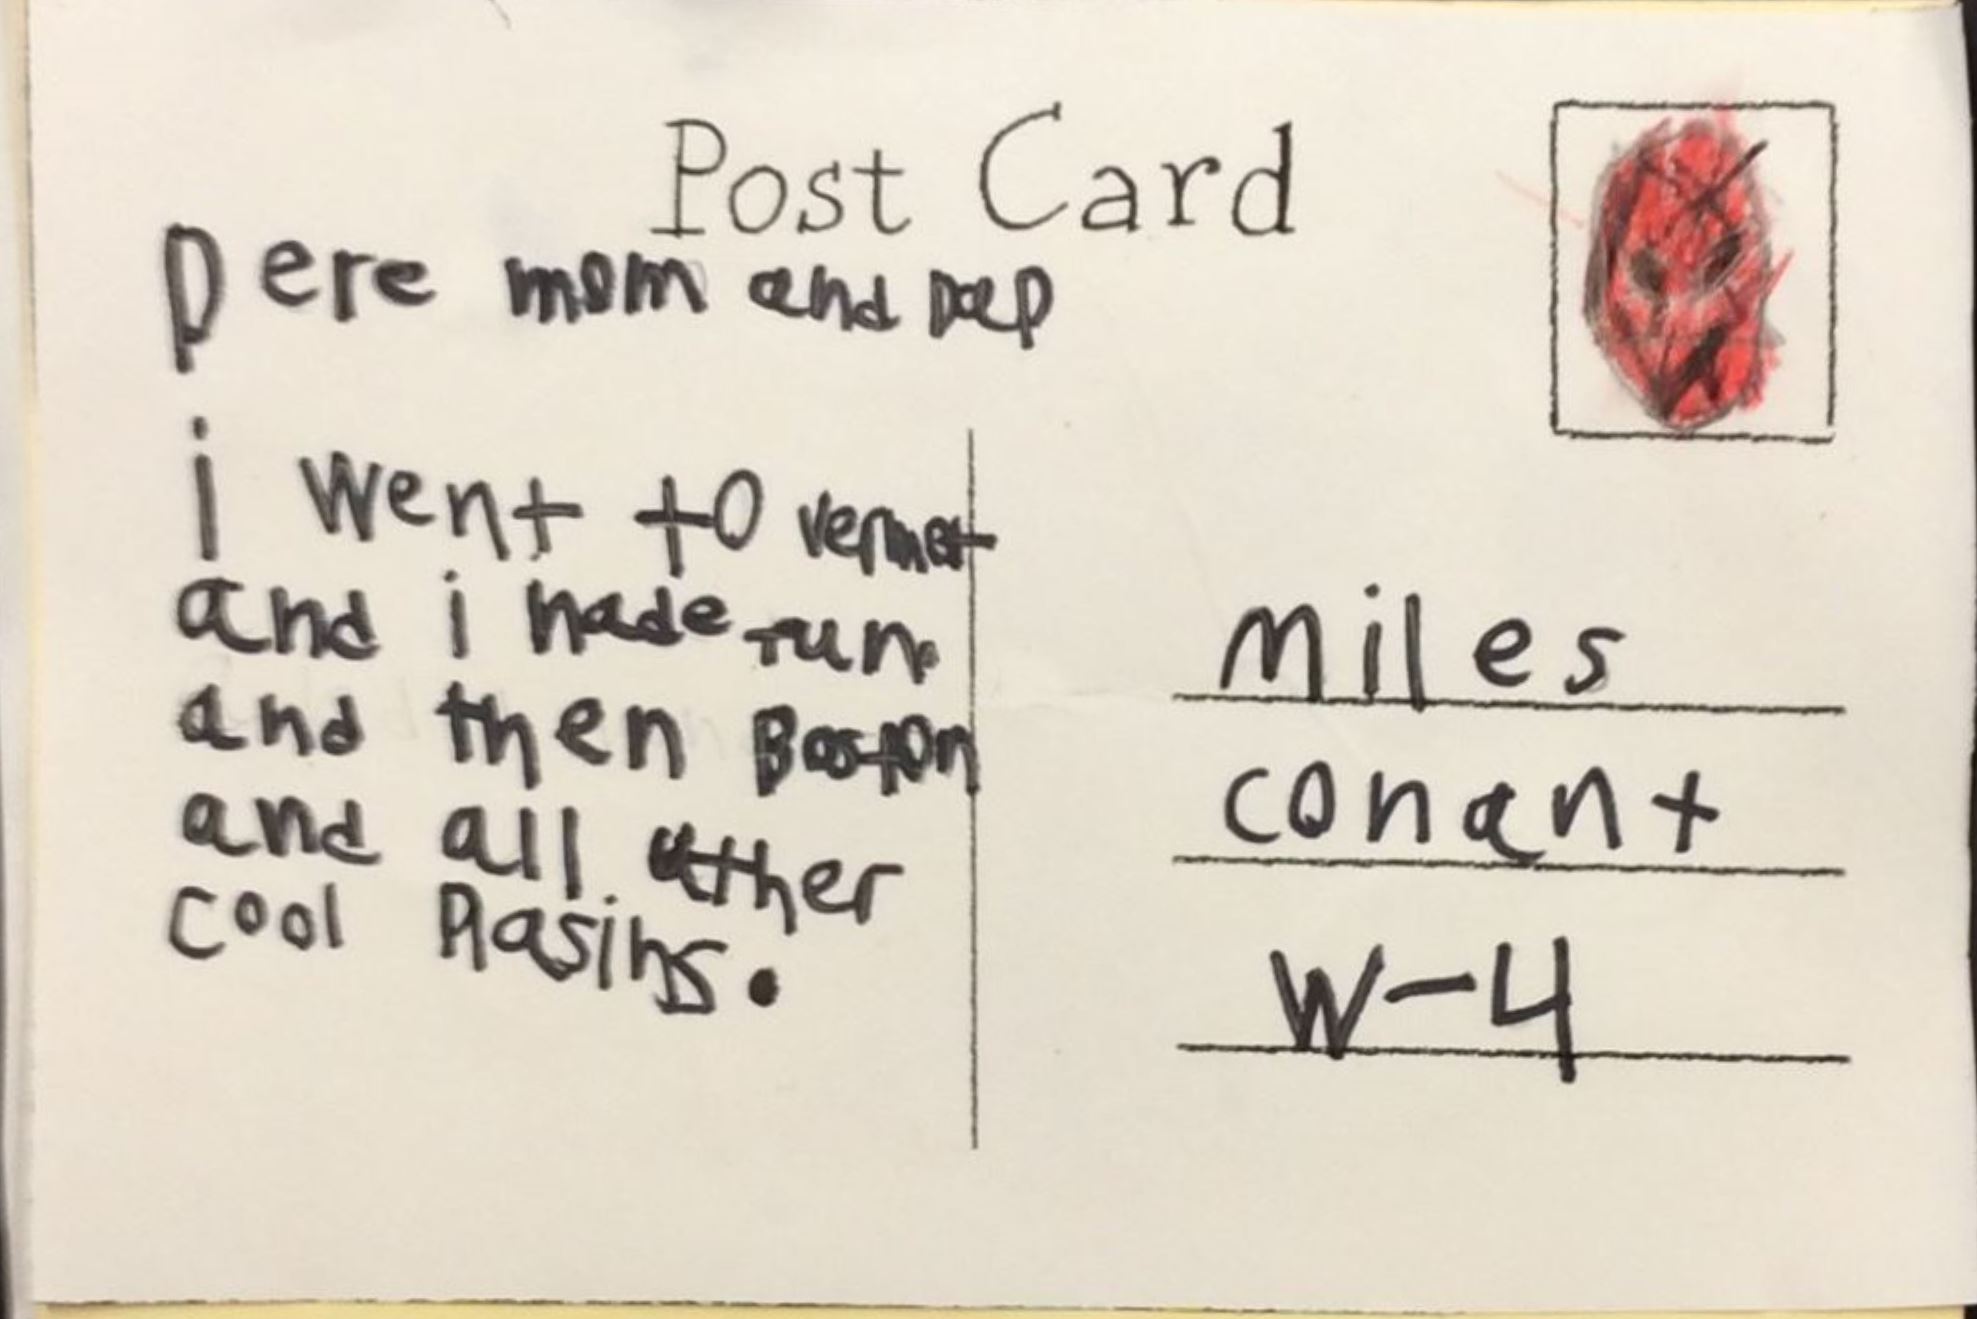 Post Card
Dere mom and Dad
i went to vermot
and i hade fun
and then Boston
and all uther
cool Plasins.
miles
conant
W-4